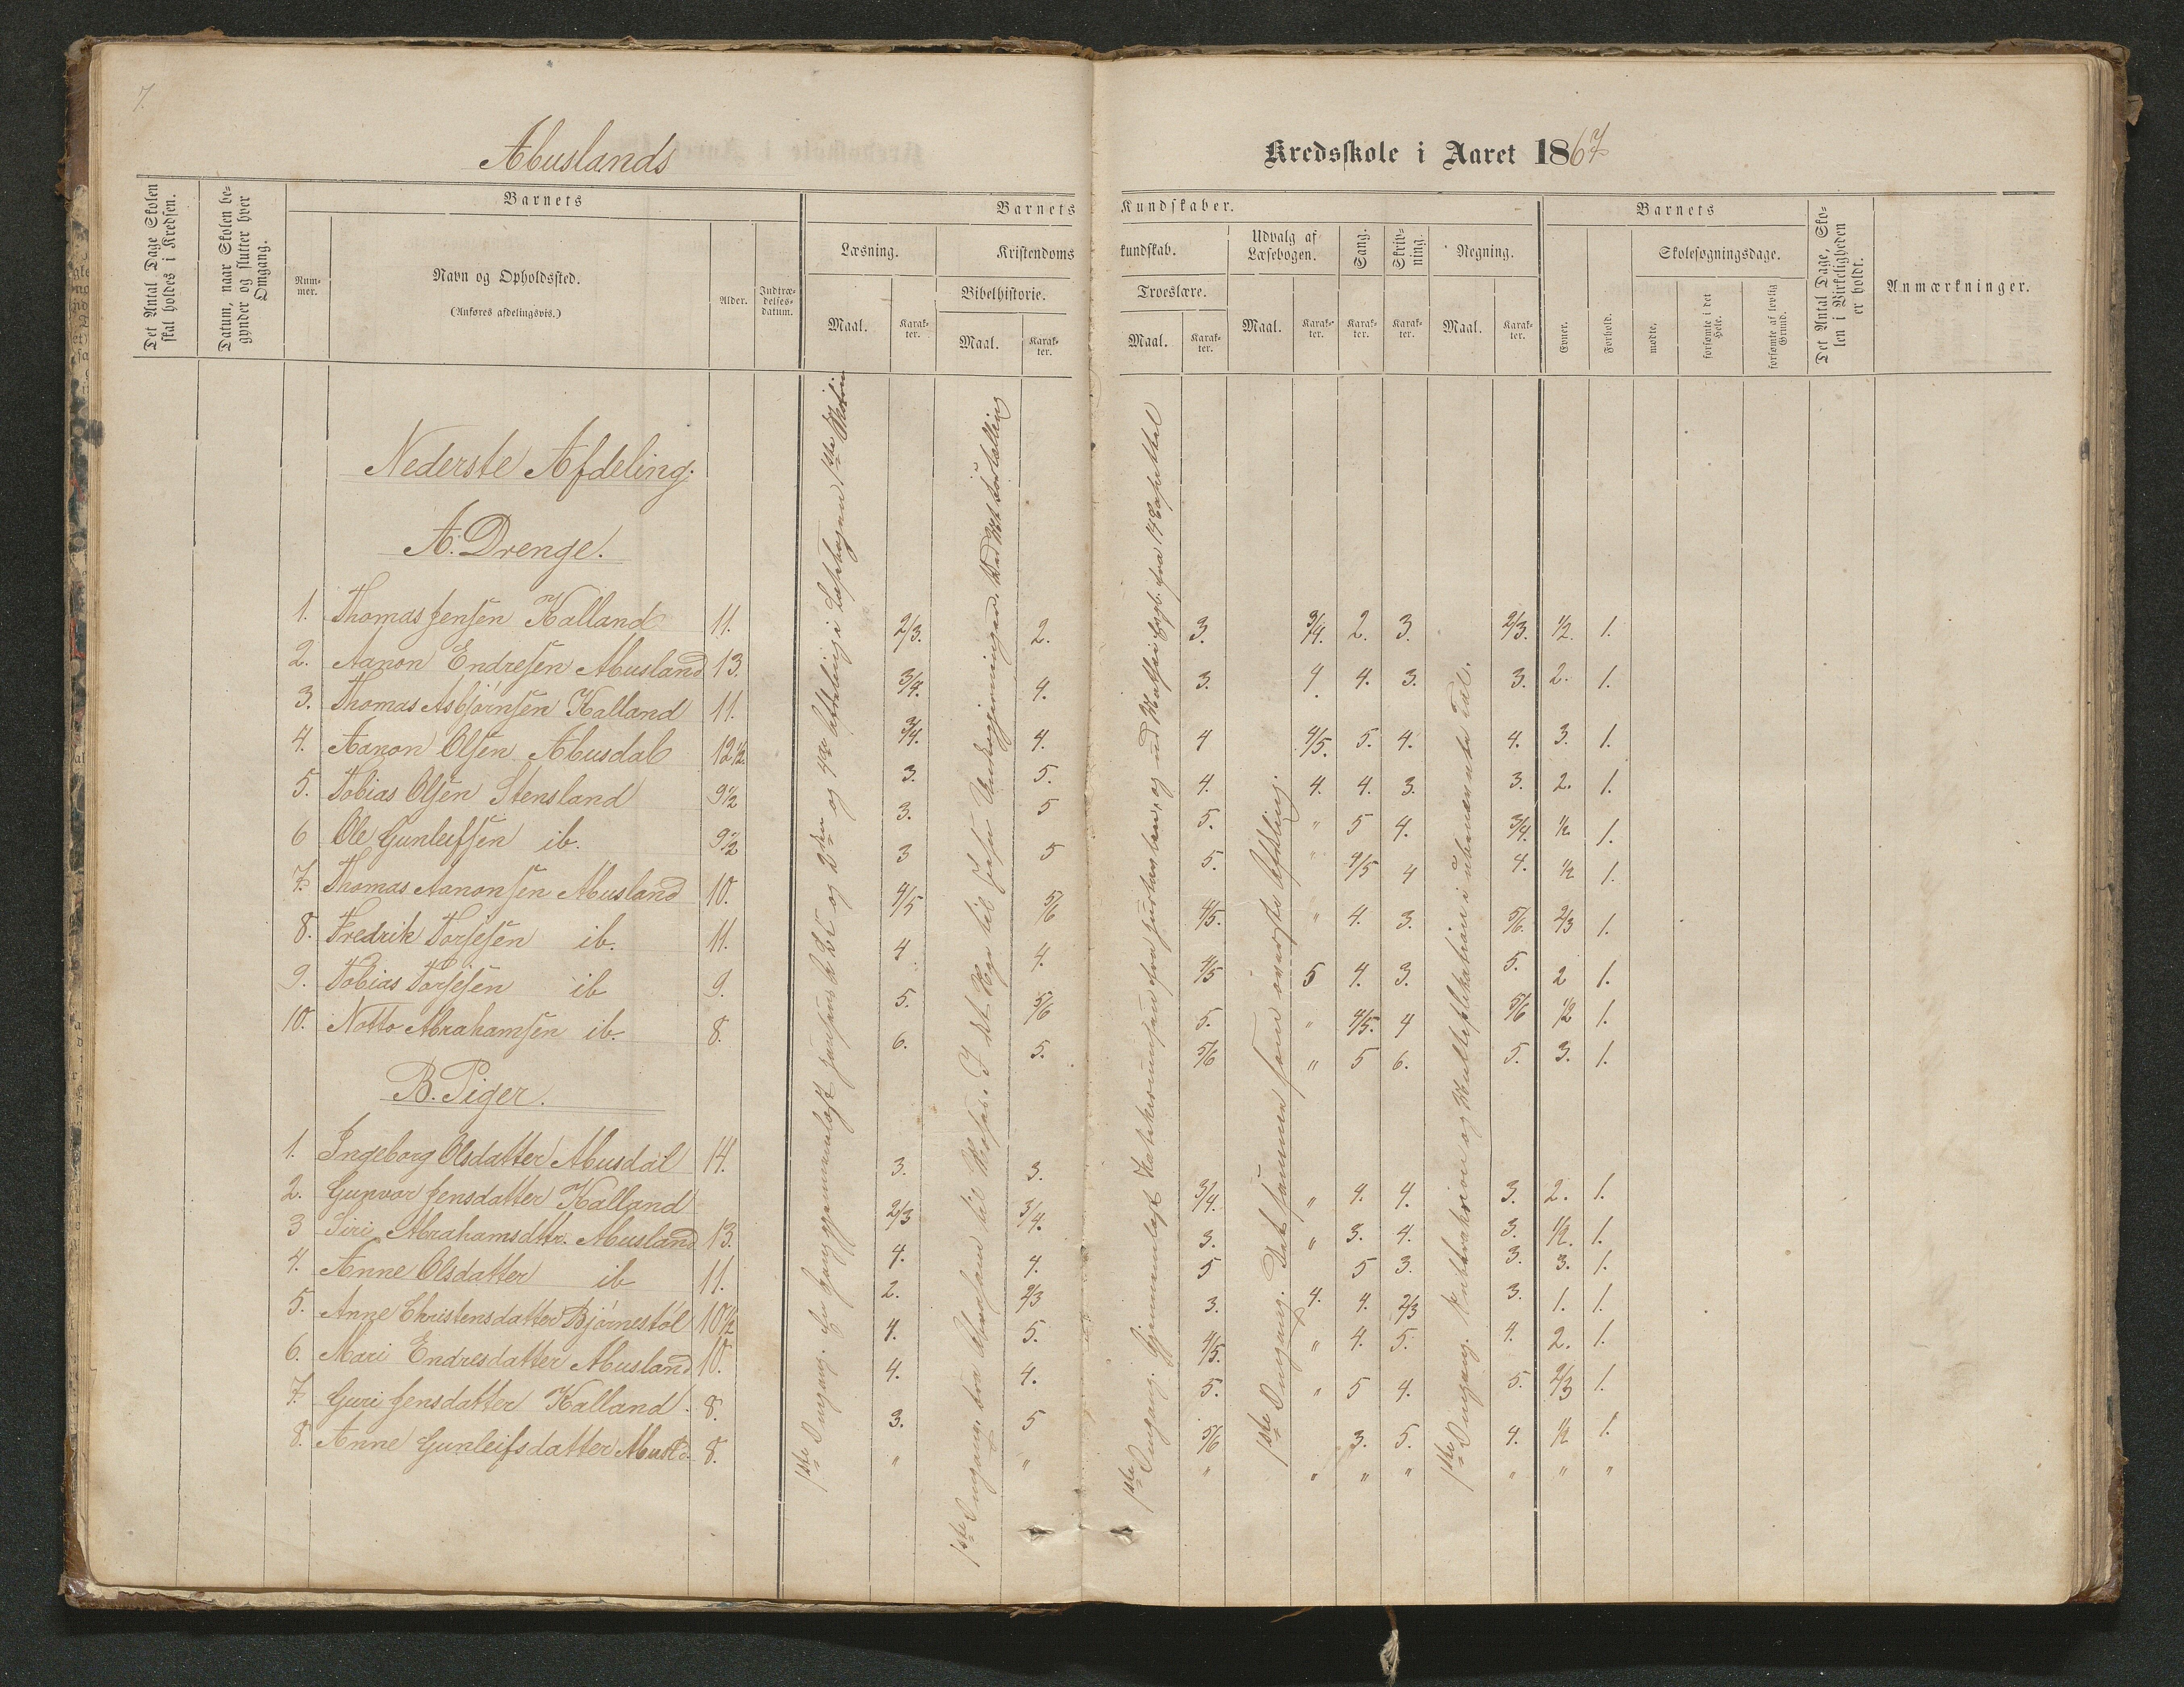 7.
Abuslands
Kredsskole i Aaret 1867
Det Antal Dage Skolen skal holdes i Kredsen.
Datum, naar Skolen begynder og slutter hver Omgang.
Barnets
Nummer.
Navn og Opholdssted.
(Anføres afdelingsvis.)
Alder.
Indtrædelsesdatum.
Barnets Kundskaber.
Læsning.
Maal.
Karakter.
Kristendomskundskab.
Bibelhistorie.
Maal.
Karakter.
Troeslære.
Maal.
Karakter.
Udvalg af Læsebogen.
Maal.
Karakter.
Sang.
Karakter.
Skrivning.
Karakter.
Regning.
Maal.
Karakter.
Barnets
Evner.
Forhold.
Skolesøgningsdage.
mødte.
forsømte i det Hele.
forsømte af lovlig Grund.
Det Antal Dage, Skolen i Virkeligheden er holdt.
Anmærkninger.
Nederste Afdeling.
A. Drenge.
1. Thomas Jensen Kalland 11. 2/3. 2. 3. 3/4. 2. 3. 2/3. 1/2. 1.
2. Aanon Endresen Abusland 13. 3/4. 4. 3. 4 4. 3. 3. 2. 1.
3. Thomas Asbjörnsen Kalland 11. 3/4. 4. 4 4/5. 5. 4. 4. 3. 1.
4. Aanon Olsen Abusdal 12 1/2. 3. 5. 4. 4. 4. 3. 3. 2. 1.
5. Tobias Olsen Stensland 9 1/2 3. 5 5. " 5 4. 3/4. 1/2 1.
6 Ole Gunleifsen ib. 9 1/2 3 5 5. " 4/5 4 4. 1/2 1.
7. Thomas Aanonsen Abusland 10. 4/5 5/6 4/5. " 4. 3. 5/6. 2/3 1.
8. Fredrik Torjesen ib. 11. 4 4. 4/5 5 4. 3. 5. 2 1.
9. Tobias Torjesen ib 9. 5. 5/6 5. " 4/5. 4 5/6 1/2 1.
10. Notto Abrahamsen ib. 8. 6. 5. 5/6 " 5 6. 5. 3. 1.
B. Piger.
1. Ingeborg Olsdatter Abusdal 14. 3. 3. 3/4. " 4. 4. 3. 2. 1.
2. Gunvor Jensdatter Kalland 2/3 3/4. 3. " 3. 4. 3. 1/2. 1.
3 Siri Abrahamsdttr. Abusland 13. 4. 4. 5 5 3. 3. 3. 1.
4. Anne Olsdatter ib 11. 2. 2/3 3. 4. 4. 2/3 3. 1. 1.
5. Anne Christensdatter Bjørnestøl 10 1/2 4. 5. 4/5. " 4. 5. 4. 2. 1.
6. Mari Endresdatter Abusland 10. 4. 4. 5. " 5 4. 5. 2/3 1.
7. Guri Jensdatter Kalland 8. 3. 5 5/6 3. 5. 4. 1/2 1.
8. Anne Gunleifsdatter Abusld. 8. " " " " " " " " "
1ste Omgang. og 2den og 4de Afdeling i Læsebogen 1ste
1ste Omgang. fra Abraham til Moses. I det Nye til Jesu
1ste Omgang. Gjennemlæst og ud
1ste Omgang. Det samme som øverste Afdeling.
1ste Omgang. Subtraktion og Multiplikation i ubenævnte Tal.